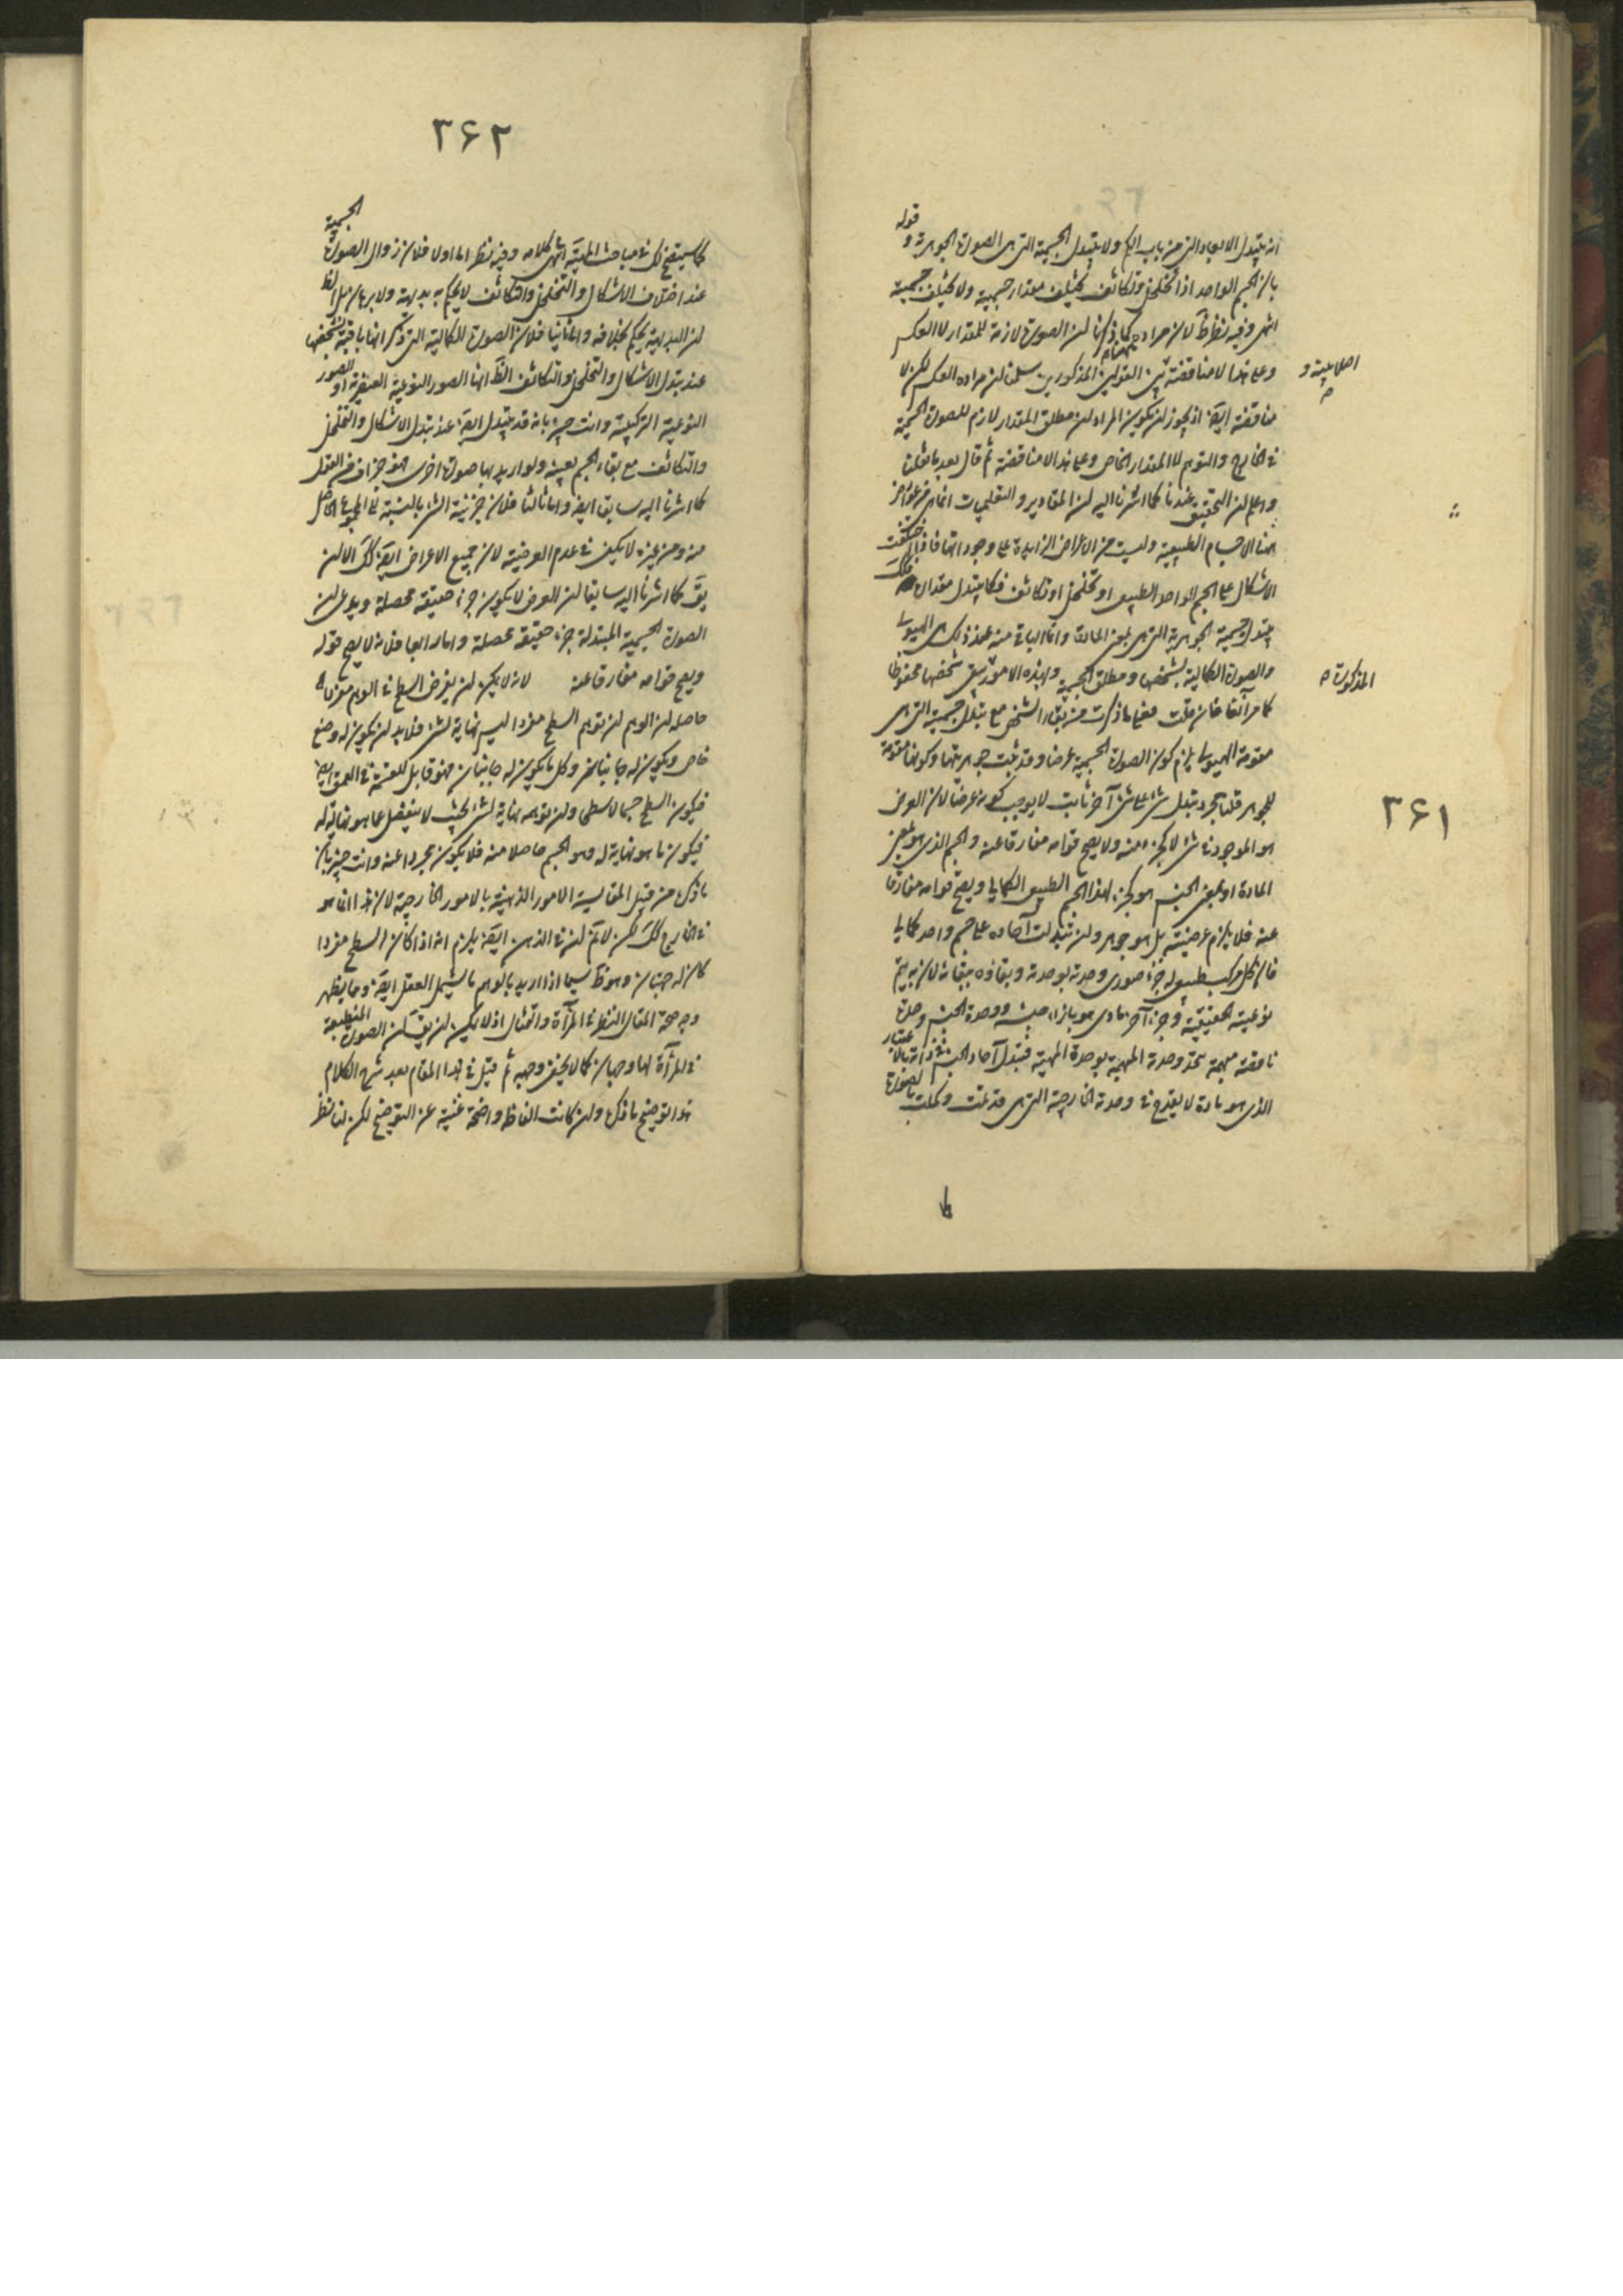 انه يتبدل الابعاد التى من باب الكم ولا يتبدل الجسمية التى هى الصورة الجوهرية و قوله
بان الجسم الواحد اذا تخلخل وتكاثف يختلف مقدار جسمية ولا يختلف جسمية
انتهى وفيه نظر ظ لان مراده كما ذكرنا لن الصورة لازمة للمقدار لا العكس
وعلى هذا لا مناقضة بين القولين المذكورين سلمنا لن مراده العكس لكن لا
اصلا عينه و
مناقضة ايضا اذ يجوز لن يكون المراد لن مطلق المقدار لازم للصورة الجسمية
فى الخارج والتوهم لا المقدار الخاص وعلى هذا لا مناقضة ثم قال بعد ما نقلنا
واعلم لن التحقيق عندنا كما اشرنا اليه لن المقادير والتعليميات انما هى من عوارض
الاجسام الطبيعية وليست من الاعراض الزايدة على وجوداتها فاذا اختلفت
الاشكال على الجسم الواحد الطبيعى او تخلخل او تكاثف فكما يتبدل مقداره فكذلك
يتبدل جسمية الجوهرية التى هى بمعنى المادة واما الباقى منه عند ذلك هى الهيولى
والصورة الكمالية بشخصها ومطلق الجسمية وبهذه الامور يبقى شخصها محفوظا
المذكورة ص
كما مر آنفا فان قلت فعلى ما ذكرت من بقاء الشخص مع تبدل جسمية التى هى
مقومة الهيولى يلزم كون الصورة الجسمية عرضا وقد ثبت جوهريتها وكونها مقومة
للجوهر قلنا مجرد تبدل شئ على شئ آخر ثابت لا يوجب كونه عرضا لان العرض
٣۶١
هو الموجود فى شئ لا كجزء منه ولا يصح قوامه مفارقا عنه والجسم الذى هو بمعنى
المادة او بمعنى الجنس هو كجزء لهذا الجسم الطبيعى الكمالى ويصح قوامه مفارقا
عنه فلا يلزم عرضيته بل هو جوهر ولن تبدلت آحاده على جسم واحد كمالى
فان كل مركب طبيعى له جزء صورى وحدته بوحدته وبقاؤه ببقائه لان به يتم
نوعيته الحقيقية وجزء آخر مادى هو بازاء جنسه ووحدة الجنس وحدة
ناقصة مبهمة تحد وحدته المبهمية بوحدة المهية فتبدل آحاد الجنس فى ذاته باعتبار
الذى هو مادة لا يقدح فى وحدته الخارجية التى هى قد تمت وكملت بالصورة
٣۶٢
كما سيتضح لك فى مباحث المهية انتهى كلامه وفيه نظر اما اولا فلان زوال الصورة الجسمية
عند اختلاف الاشكال والتخلخل والتكاثف لا يحكم به بديهة ولا برهان بل الظ
لن البديهة يحكم بخلافه واما ثانيا فلان الصورة الكمالية التى ذكر انها باقية بشخصها
عند تبدل الاشكال والتخلخل والتكاثف الظ انها الصور النوعية العنصرية او الصور
النوعية التركيبية وانت خبير بانه قد يتبدل ايضا عند تبدل الاشكال والتخلخل
والتكاثف مع بقاء الجسم بعينه ولو اريد بها صورة اخرى فهو جزاف من القول
كما اشرنا اليه سابقا ايضا واما ثالثا فلان جزئية الشئ بالنسبة الى المجموع الحاصل
منه ومن غيره لا يكفى فى عدم العرضية لان جميع الاعراض ايضا كك الا لن
يق كما اشرنا اليه سابقا لن العرض لا يكون جزء حقيقة محصلة ويدعى لن
الصورة الجسمية المتبدلة جزء حقيقة محصلة واما رابعا فلانه لا يصح قوله
ويصح قوامه مفارقا عنه لانه لا يمكن لن يفرض السطح فى الوهم مفردا ه
حاصله لن الوهم لن توهم السطح مفردا ليس نهاية لشئ فلابد لن يكون له وضع
خاص ويكون له جانبان وكل ما يكون له جانبان فهو قابل للقسمة فى العمق ايضا
فيكون السطح جسما لا سطحا ولن توهمه نهاية لشئ بحيث لا ينفصل عما هو نهاية له
فيكون ما هو نهاية له وهو الجسم حاصلا معه فلا يكون مجردا عنه وانت خبير بان
ما ذكره من قبيل المقايسة الامور الذهنية بالامور الخارجية لان هذا انما هو
فى الخارج كك لكن لا تم لن فى الذهن ايضا يلزم انه اذا كان السطح مفردا
كان له جهتان وهو ظ سيما اذا اريد بالوهم ما يشمل العقل ايضا ومما يظهر
وجه صحة المقال النظر فى المرآة والتمثال اذ لا يمكن لن يق لن الصورة المنطبعة
فى المرآة لها وجهان كما لا يخفى وجهه ثم قيل فى هذا المقام بعد شرح الكلام
هذا توضيح ما ذكره ولن كانت الفاظه واضحة غنية عن التوضيح لكن لنا نظر